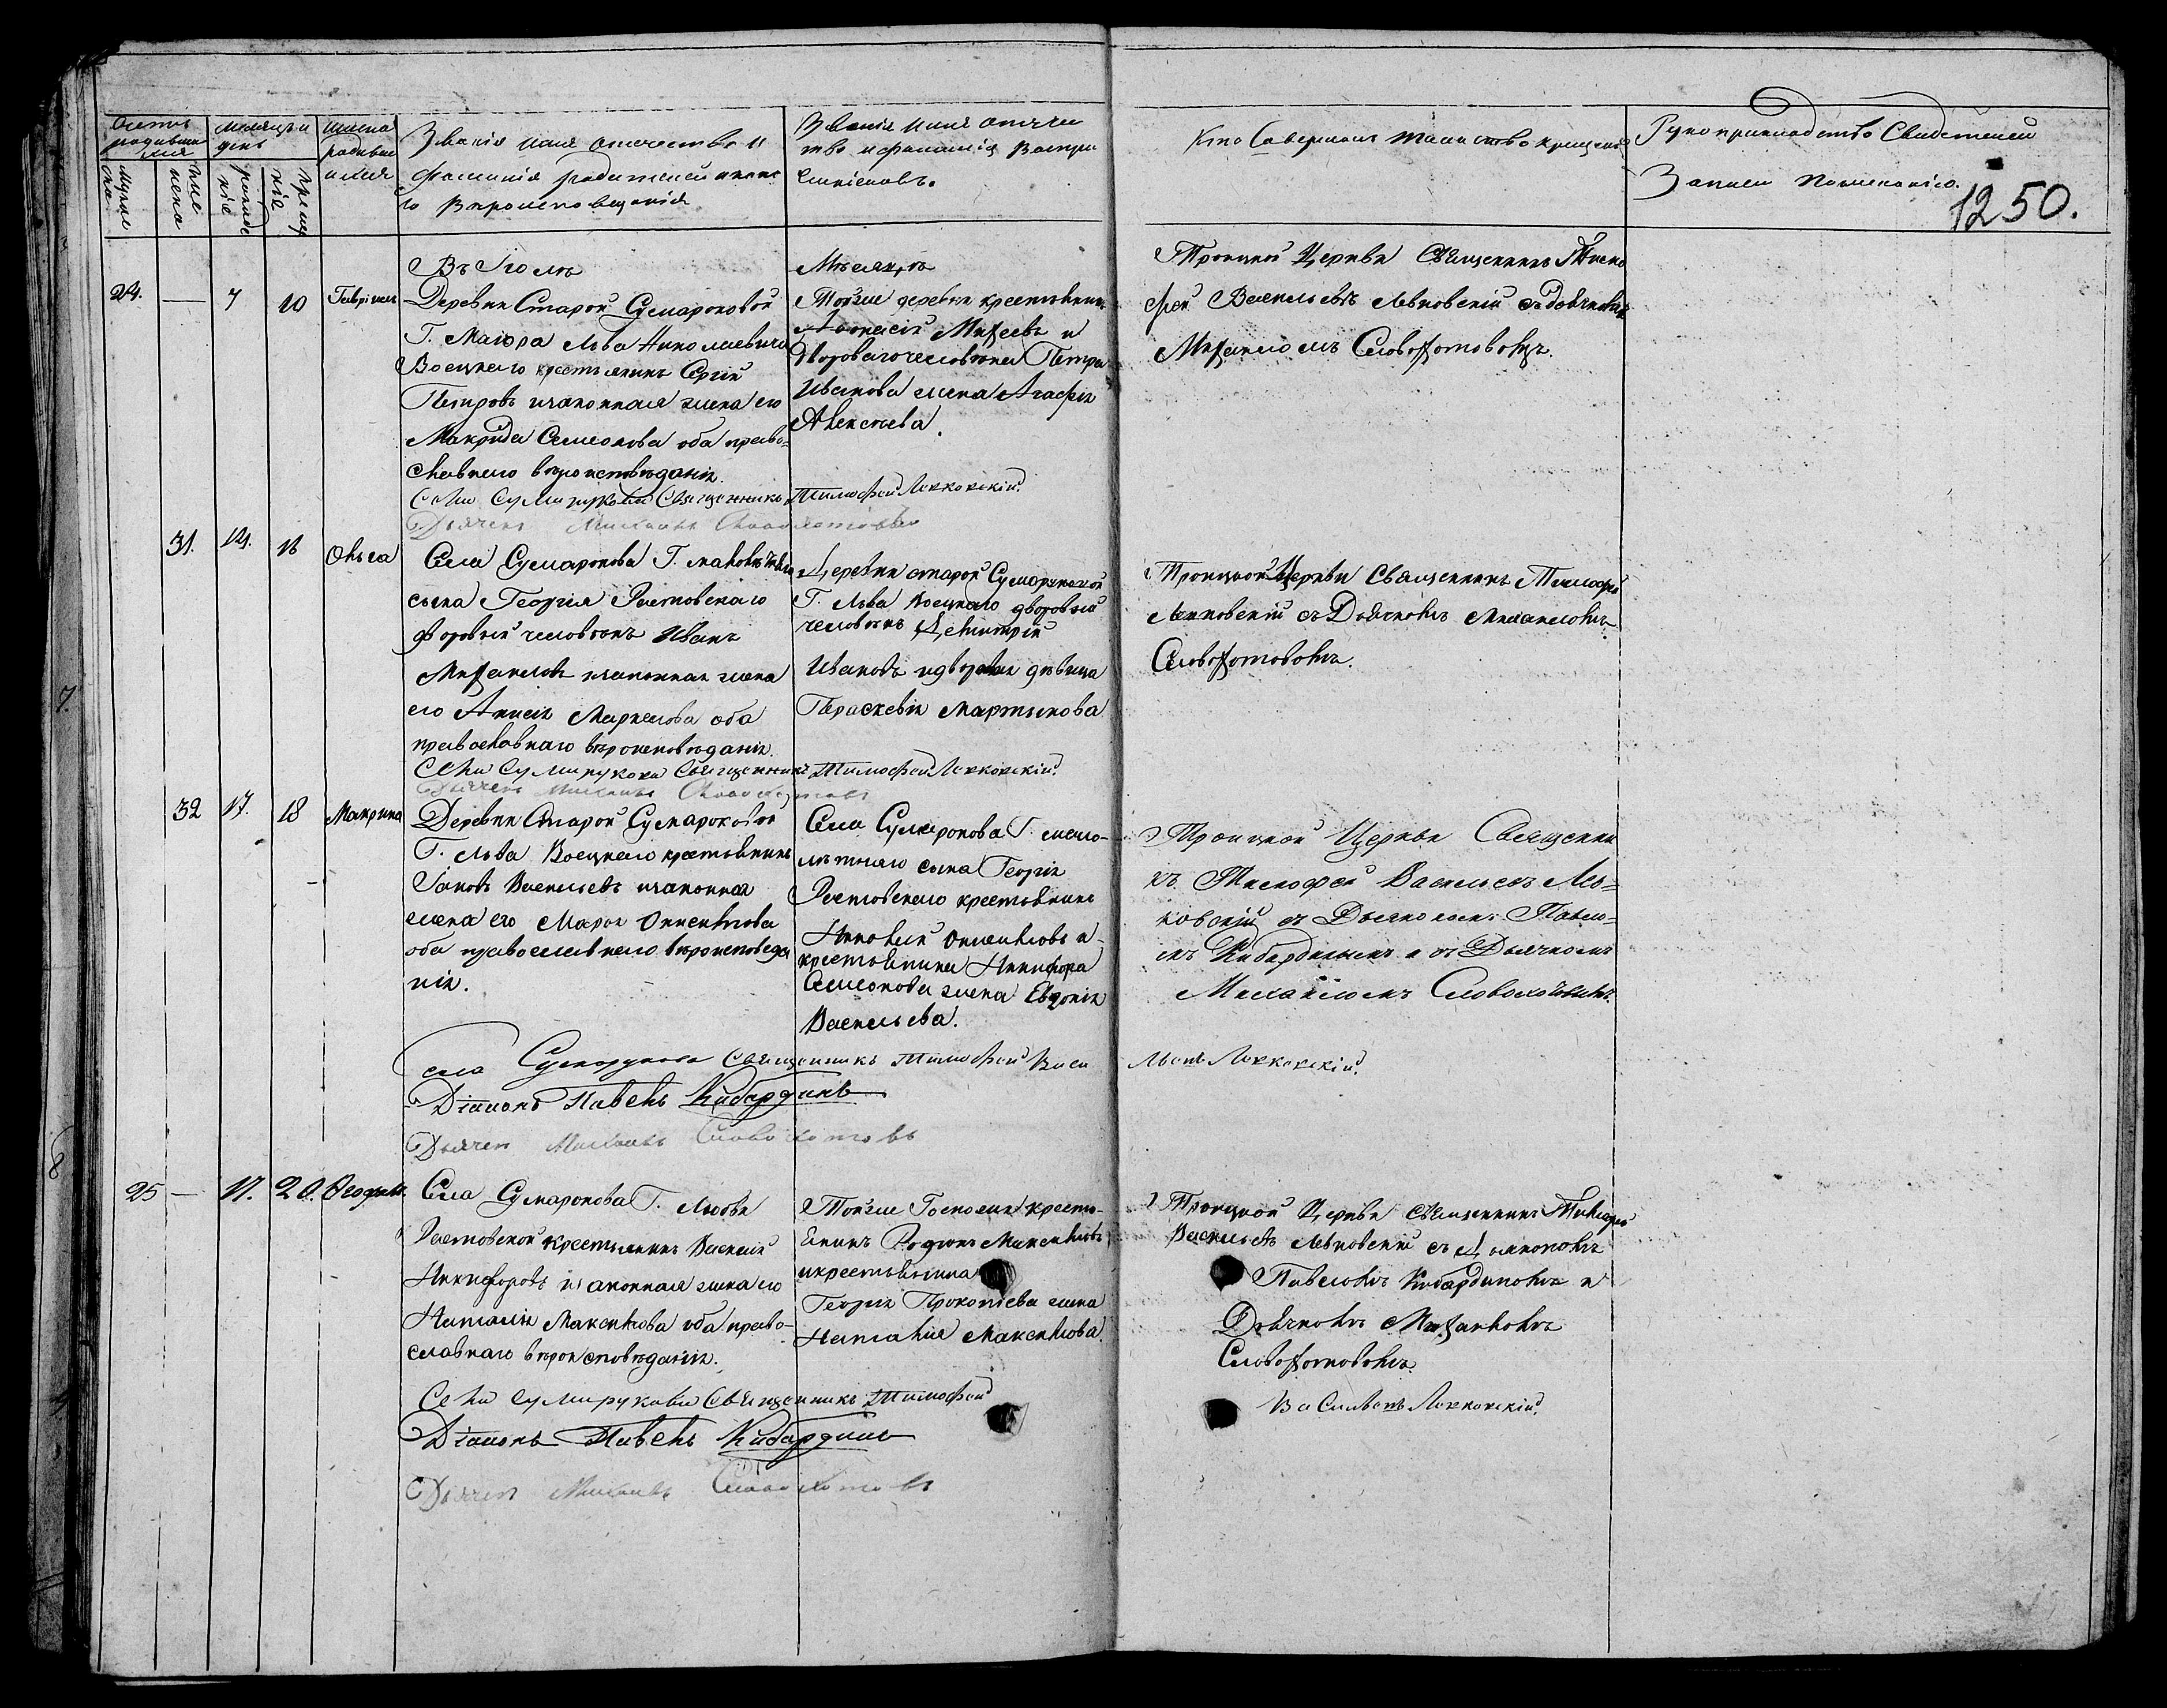 Счетъ родившихся
Мужеска
Женска
Месяцъ и день
рожденiе
крещенiе
Имена родившихся
Званiя имя отечество и
фамилiя родителей и како
го вероисповеданiя
Званiя имя отече
ство и фамилiя воспри
емниковъ.
Кто совершилъ таинство крещенiя
Рукоприкладство свидетелей
записи по желанiю.
1250.
Въ Iюлѣ
Мѣсяцѣ
24. — 7 10 Гаврiилъ
Деревни Старой Сумароковой
Г. Маiора Льва Николаевича
Воецкаго крестьянинъ Сергiй
Петровъ и законная жена его
Макрида Семенова оба право=
славнаго вѣроисповѣданiя.
Тойже деревни крестьянинъ
Афонасiй Михеевъ и
двороваго человѣка Петра
Иванова жена Агафiя
Алексѣева.
Троицкой Церкви Священникъ Тимо
фей Васильевъ Левковскiй съ дьячкомъ
Михаиломъ Словохотовомъ.
Села Сумарукова Священникъ Тимофей Левковскiй.
Дьячекъ Михаилъ Словохотовъ
31. 14. 16 Ольга
Села Сумарокова Г. малолѣтняго
сына Георгiя Ростовскаго
дворовый человѣкъ Иванъ
Михаиловъ и законная жена
его Анисiя Маркелова оба
православнаго вѣроисповѣданiя.
Деревни старой Сумароковой
Г. Льва Воецкаго дворовый
человѣкъ Дмитрiй
Ивановъ и дворовая дѣвица
Параскевiя Мартынова
Троицкой Церкви Священникъ Тимофей
Левковскiй съ Дьячкомъ Михаиломъ
Словохотовомъ.
Села Сумарукова Священникъ Тимофей Левковскiй.
Дьячекъ Михаилъ Словохотовъ
32 17. 18 Макрина
Деревни Старой Сумароковой
Г. Льва Воецкаго крестьянинъ
Iаковъ Васильевъ и законная
жена его Марфа
оба православнаго вѣроисповеда
нiя.
Села Сумарокова Г. мало-
лѣтняго сына Георгiя
Ростовскаго крестьянинъ
Николай и
крестьянина Никифора
Семенова жена Евдокiя
Васильева.
Троицкой Церкви Священни
къ Тимофей Васильевъ Лев=
ковскiй съ Дьякономъ Павло-
мъ Кибардинымъ и съ Дьячкомъ
Михаиломъ Словохотовымъ.
села Сумарукова Священникъ Тимофей Васи
льевъ Левковскiй.
Дiаконъ Павелъ Кибардинъ
Дьячекъ Михаилъ Словохотовъ
25 — 17. 20.
Села Сумарокова Г. Любови
Ростовской крестьянинъ Василiй
Никифоровъ и законная жена его
Наталiя Максимова оба право-
славнаго вѣроисповѣданiя.
Тойже Госпожи кресть-
янинъ Родiонъ Максимовъ
и крестьянина
Георгiя Прокопiева жена
Наталiя Максимова
Троицкой Церкви священникъ Тимофей
Васильевъ Левковскiй съ Дьякономъ
Павломъ Кибардиномъ и
Дьячкомъ Михаиломъ
Словохотовомъ
Села Сумарукова Священникъ Тимофей
Васильевъ Левковскiй.
Дiаконъ Павелъ Кибардинъ
Дьячекъ Михаилъ Словохотовъ